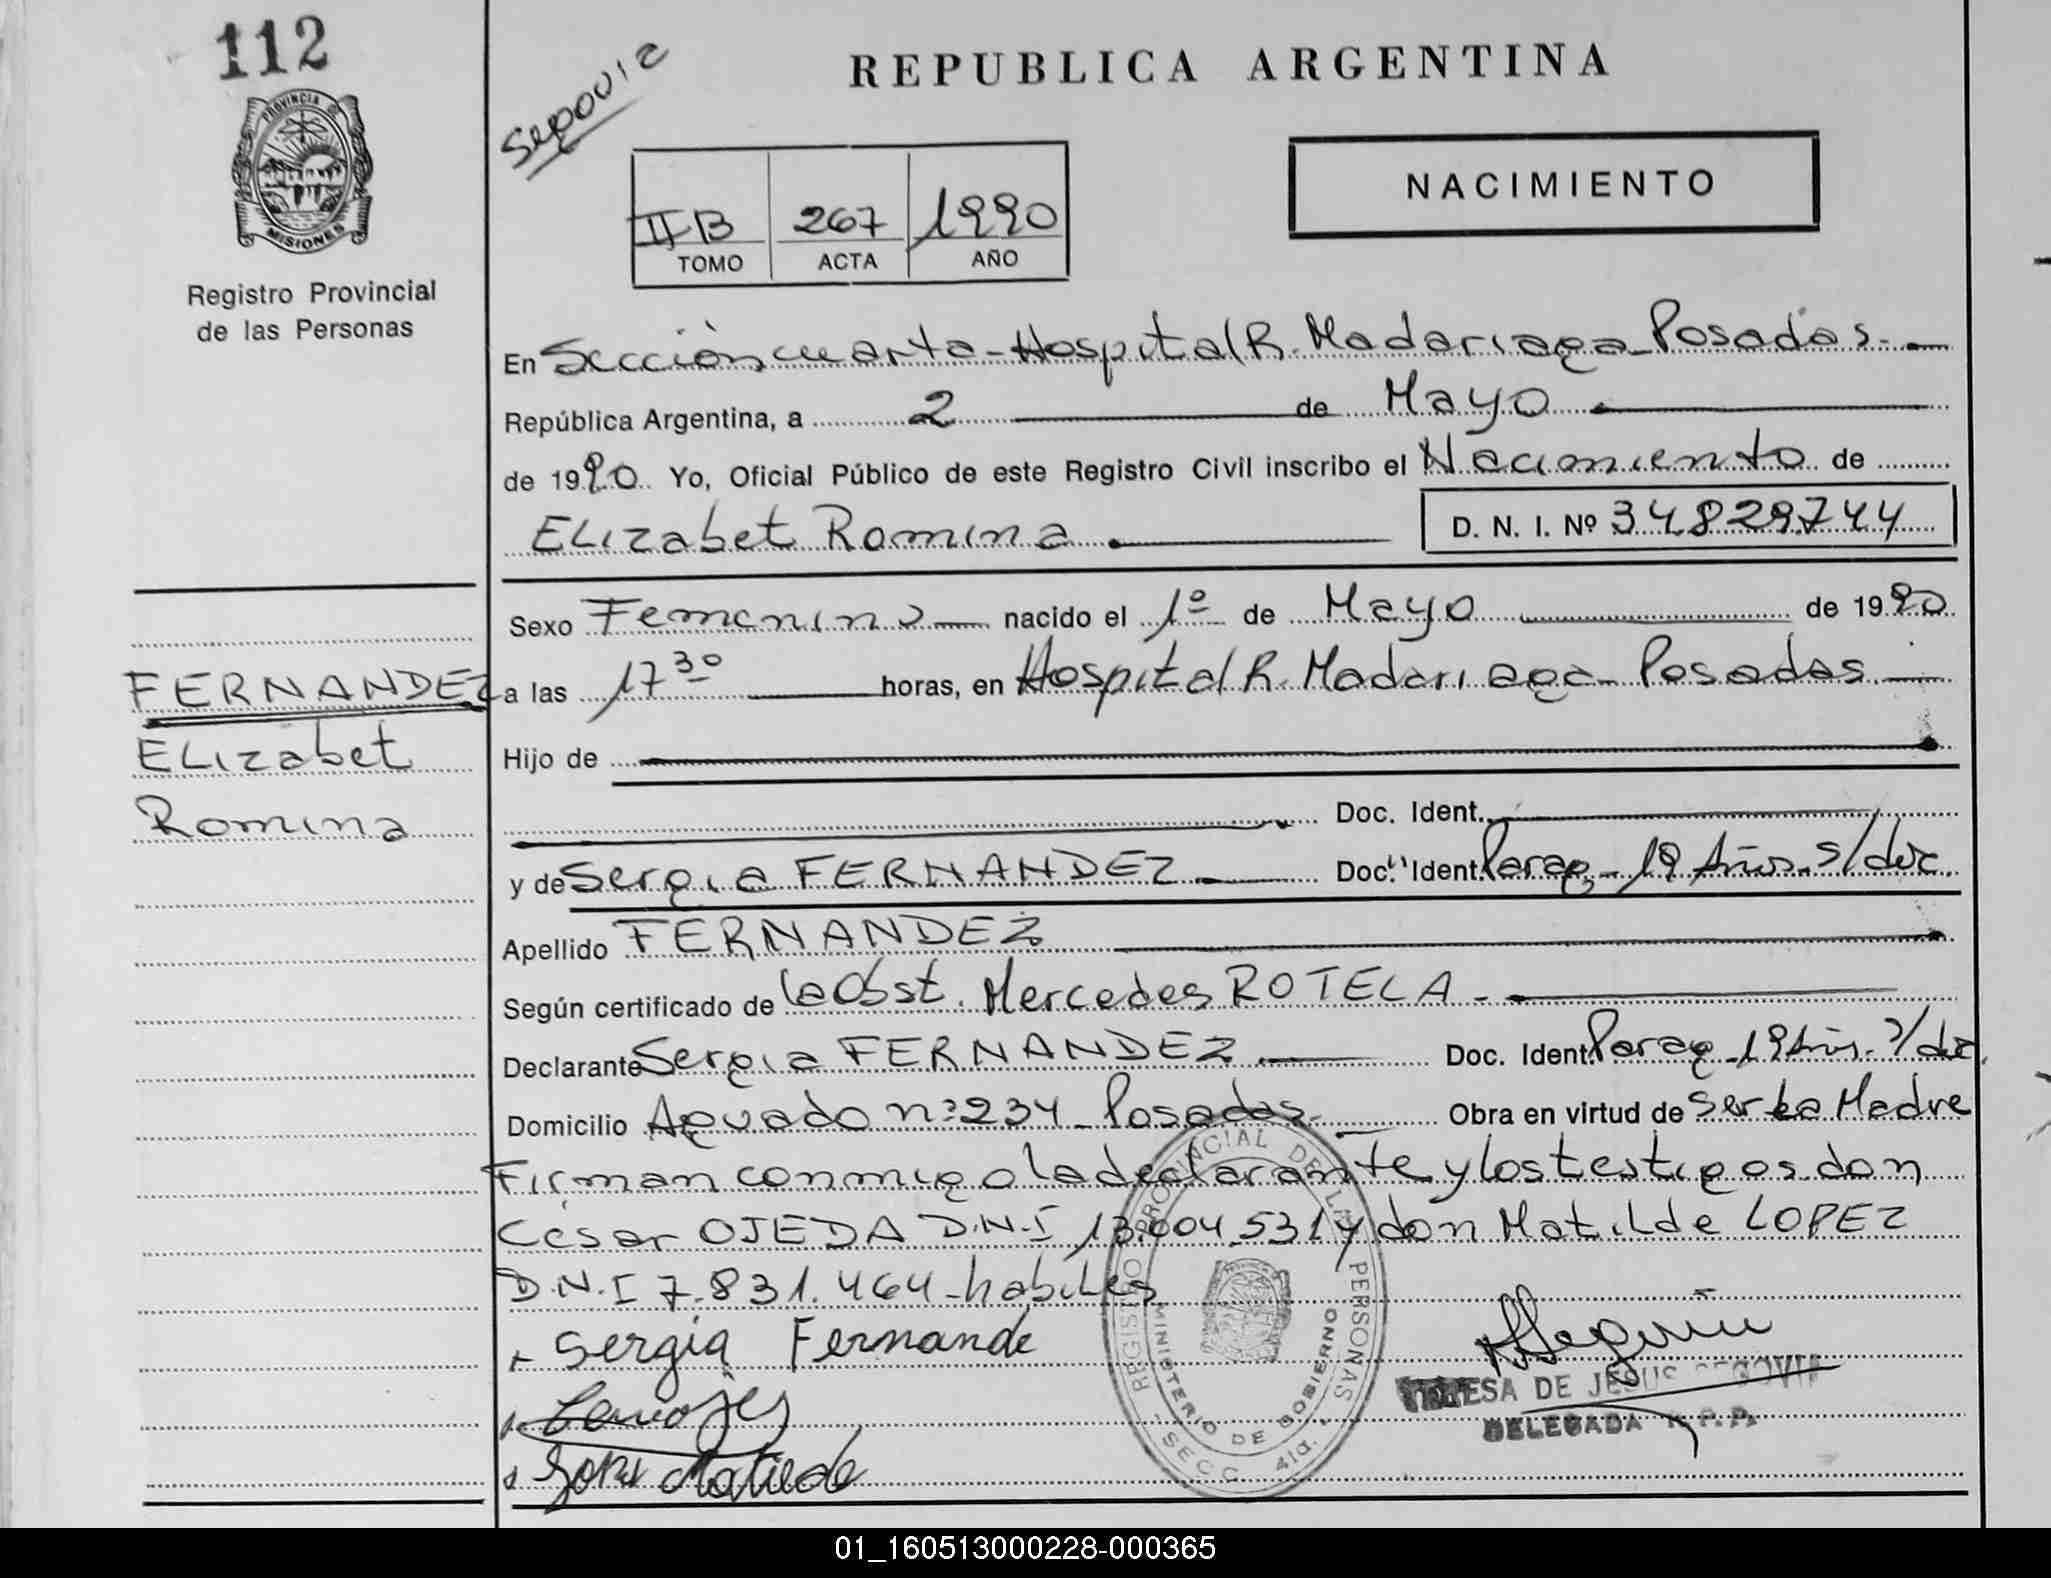 112
Sepov12
REPUBLICA ARGENTINA
PROVINCIA DE
MISIONES
Registro Provincial
de las Personas
IIB 267 1990
TOMO ACTA AÑO
NACIMIENTO
En Sección cuarta-Hospital R. Madariaga-Posadas.-
República Argentina, a 2 de Mayo
de 1990 Yo, Oficial Público de este Registro Civil inscribo el Nacimiento de
ELizabet Romina
D. N. I. Nº 34.829744
Sexo Femenino nacido el 1º de Mayo de 1990
FERNANDEZ
ELizabet
Romina
a las 17 30 horas, en Hospital R. Madariaga-Posadas.
Hijo de
Doc. Ident.
y de Sergia FERNANDEZ Doc. Ident. Parag.-19 Años. s/doc.
Apellido FERNANDEZ
Según certificado de la Obst. Mercedes ROTELA.-
Declarante Sergia FERNANDEZ Doc. Ident. Parag-19 Años. s/doc.
Domicilio Aguado nº 234-Posadas. Obra en virtud de ser La Madre
Firman conmigo la declarante y los testigos. don
César OJEDA D.N.I 13.004.531 y don Matilde LOPEZ
D.N.I 7.831.464-habiles
Sergia Fernande
Lopez Matilde
TERESA DE JESUS SEGOVIA
DELEGADA R.P.P.
REGISTRO PROVINCIAL DE LAS PERSONAS
MINISTERIO DE GOBIERNO
- SECC. 4ta. -
01_160513000228-000365